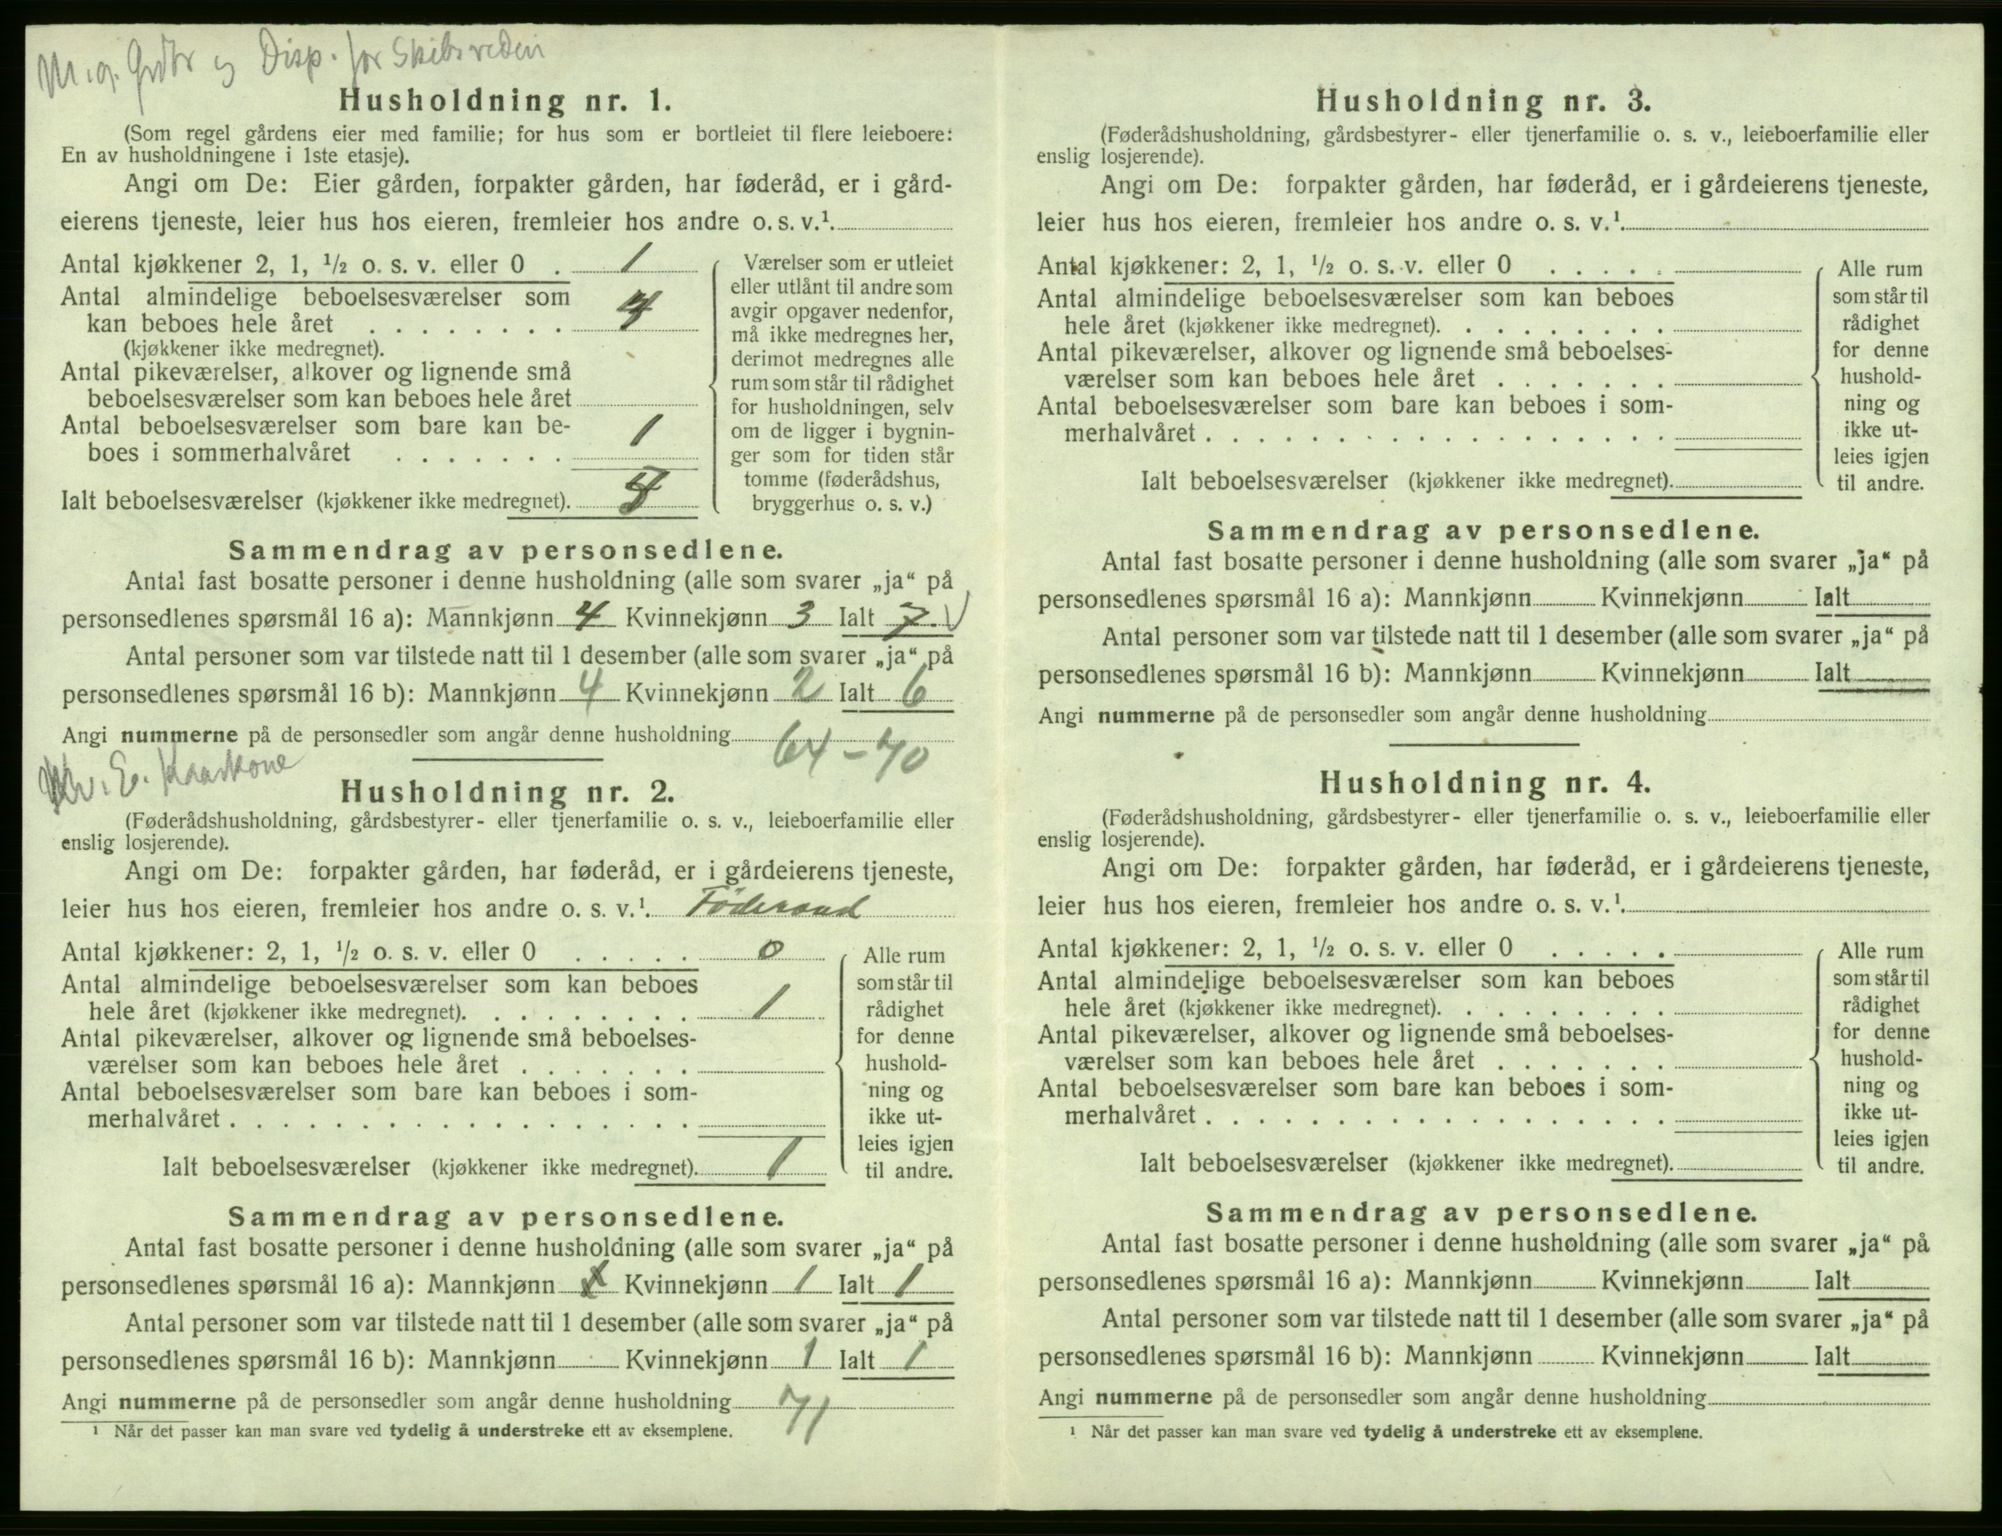 M. g. Grdbr og Disp. for Skibsrederi
Husholdning nr. 1.
(Som regel gårdens eier med familie; for hus som er bortleiet til flere leieboere:
En av husholdningene i 1ste etasje).
Angi om De: Eier gården, forpakter gården, har føderåd, er i gård-
eierens tjeneste, leier hus hos eieren, fremleier hos andre o. s. v.¹.
Antal kjøkkener 2, 1, ½ o. s. v. eller 0 . 1
Antal almindelige beboelsesværelser som
kan beboes hele året . . . . . . . . 4
(kjøkkener ikke medregnet).
Antal pikeværelser, alkover og lignende små
beboelsesværelser som kan beboes hele året
Antal beboelsesværelser som bare kan be-
boes i sommerhalvåret . . . . . . . 1
Ialt beboelsesværelser (kjøkkener ikke medregnet). 5
Værelser som er utleiet
eller utlånt til andre som
avgir opgaver nedenfor,
må ikke medregnes her,
derimot medregnes alle
rum som står til rådighet
for husholdningen, selv
om de ligger i bygnin-
ger som for tiden står
tomme (føderådshus,
bryggerhus o. s. v.)
Sammendrag av personsedlene.
Antal fast bosatte personer i denne husholdning (alle som svarer „ja“ på
personsedlenes spørsmål 16 a): Mannkjønn 4 Kvinnekjønn 3 Ialt 7. V
Antal personer som var tilstede natt til 1 desember (alle som svarer „ja“ på
personsedlenes spørsmål 16 b): Mannkjønn 4 Kvinnekjønn 2 Ialt 6
Angi nummerne på de personsedler som angår denne husholdning 64-70
kv. E.
Husholdning nr. 2.
(Føderådshusholdning, gårdsbestyrer- eller tjenerfamilie o. s. v., leieboerfamilie eller
enslig losjerende).
Angi om De: forpakter gården, har føderåd, er i gårdeierens tjeneste,
leier hus hos eieren, fremleier hos andre o. s. v.¹. Föderaad
Antal kjøkkener: 2, 1, ½ o. s. v. eller 0 . . . . . 0
Antal almindelige beboelsesværelser som kan beboes
hele året (kjøkkener ikke medregnet). . . . . . . . . 1
Antal pikeværelser, alkover og lignende små beboelses-
værelser som kan beboes hele året . . . . . . .
Antal beboelsesværelser som bare kan beboes i som-
merhalvåret . . . . . . . . . . . . . . . . . .
Ialt beboelsesværelser (kjøkkener ikke medregnet). 1
Alle rum
som står til
rådighet
for denne
hushold-
ning og
ikke ut-
leies igjen
til andre.
Sammendrag av personsedlene.
Antal fast bosatte personer i denne husholdning (alle som svarer „ja“ på
personsedlenes spørsmål 16 a): Mannkjønn Kvinnekjønn 1 Ialt 1
Antal personer som var tilstede natt til 1 desember (alle som svarer „ja“ på
personsedlenes spørsmål 16 b): Mannkjønn Kvinnekjønn 1 Ialt 1
Angi nummerne på de personsedler som angår denne husholdning 71
¹ Når det passer kan man svare ved tydelig å understreke ett av eksemplene.
Husholdning nr. 3.
(Føderådshusholdning, gårdsbestyrer- eller tjenerfamilie o. s. v., leieboerfamilie eller
enslig losjerende).
Angi om De: forpakter gården, har føderåd, er i gårdeierens tjeneste,
leier hus hos eieren, fremleier hos andre o. s. v.¹.
Antal kjøkkener: 2, 1, ½ o. s. v. eller 0 . . . . .
Antal almindelige beboelsesværelser som kan beboes
hele året (kjøkkener ikke medregnet). . . . . . . . .
Antal pikeværelser, alkover og lignende små beboelses-
værelser som kan beboes hele året . . . . . . .
Antal beboelsesværelser som bare kan beboes i som-
merhalvåret . . . . . . . . . . . . . . . . . .
Ialt beboelsesværelser (kjøkkener ikke medregnet).
Alle rum
som står til
rådighet
for denne
hushold-
ning og
ikke ut-
leies igjen
til andre.
Sammendrag av personsedlene.
Antal fast bosatte personer i denne husholdning (alle som svarer „ja“ på
personsedlenes spørsmål 16 a): Mannkjønn Kvinnekjønn Ialt
Antal personer som var tilstede natt til 1 desember (alle som svarer „ja“ på
personsedlenes spørsmål 16 b): Mannkjønn Kvinnekjønn Ialt
Angi nummerne på de personsedler som angår denne husholdning
Husholdning nr. 4.
(Føderådshusholdning, gårdsbestyrer- eller tjenerfamilie o. s. v., leieboerfamilie eller
enslig losjerende).
Angi om De: forpakter gården, har føderåd, er i gårdeierens tjeneste,
leier hus hos eieren, fremleier hos andre o. s. v.¹.
Antal kjøkkener: 2, 1, ½ o. s. v. eller 0 . . . . .
Antal almindelige beboelsesværelser som kan beboes
hele året (kjøkkener ikke medregnet). . . . . . . . .
Antal pikeværelser, alkover og lignende små beboelses-
værelser som kan beboes hele året . . . . . . .
Antal beboelsesværelser som bare kan beboes i som-
merhalvåret . . . . . . . . . . . . . . . . . .
Ialt beboelsesværelser (kjøkkener ikke medregnet).
Alle rum
som står til
rådighet
for denne
hushold-
ning og
ikke ut-
leies igjen
til andre.
Sammendrag av personsedlene.
Antal fast bosatte personer i denne husholdning (alle som svarer „ja“ på
personsedlenes spørsmål 16 a): Mannkjønn Kvinnekjønn Ialt
Antal personer som var tilstede natt til 1 desember (alle som svarer „ja“ på
personsedlenes spørsmål 16 b): Mannkjønn Kvinnekjønn Ialt
Angi nummerne på de personsedler som angår denne husholdning
¹ Når det passer kan man svare ved tydelig å understreke ett av eksemplene.